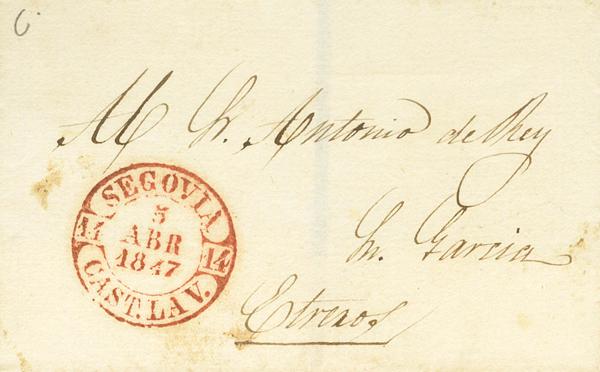 Al Sr. Antonio de Rey
Sn. Garcia
Etreros
SEGOVIA
5
ABR
1847
14
14
CAST. LA V.